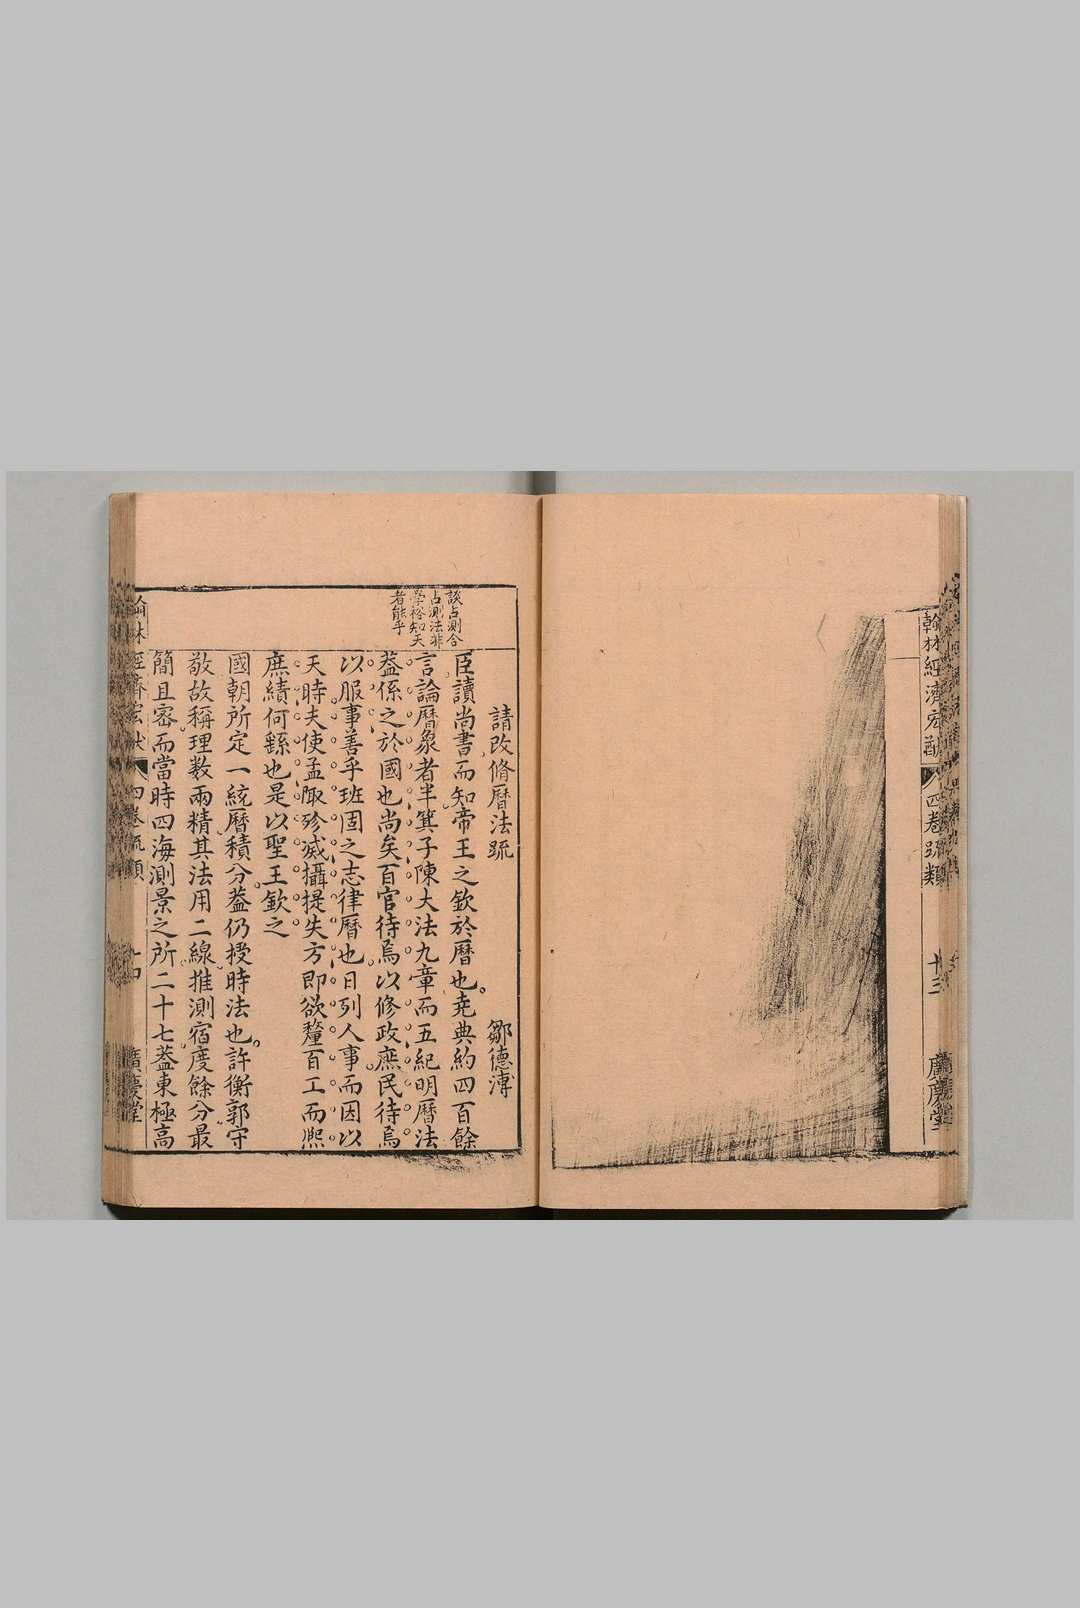 翰林經濟宏猷
四卷疏類
十三
廣慶堂
談占測合
占測法非
學裕知天
者能乎
請改脩曆法疏
鄒德溥
臣讀尚書而知帝王之欽於曆也堯典約四百餘
言論曆象者半箕子陳大法九章而五紀明曆法
蓋係之於國也尚矣百官待焉以修政庶民待焉
以服事善乎班固之志律曆也曰列人事而因以
天時夫使孟陬殄滅攝提失方即欲釐百工而熈
庶績何繇也是以聖王欽之
國朝所定一統曆積分蓋仍授時法也許衡郭守
敬故稱理數兩精其法用二線推測宿度餘分最
簡且密而當時四海測景之所二十七蓋東極高
四卷疏類
十四
廣慶堂